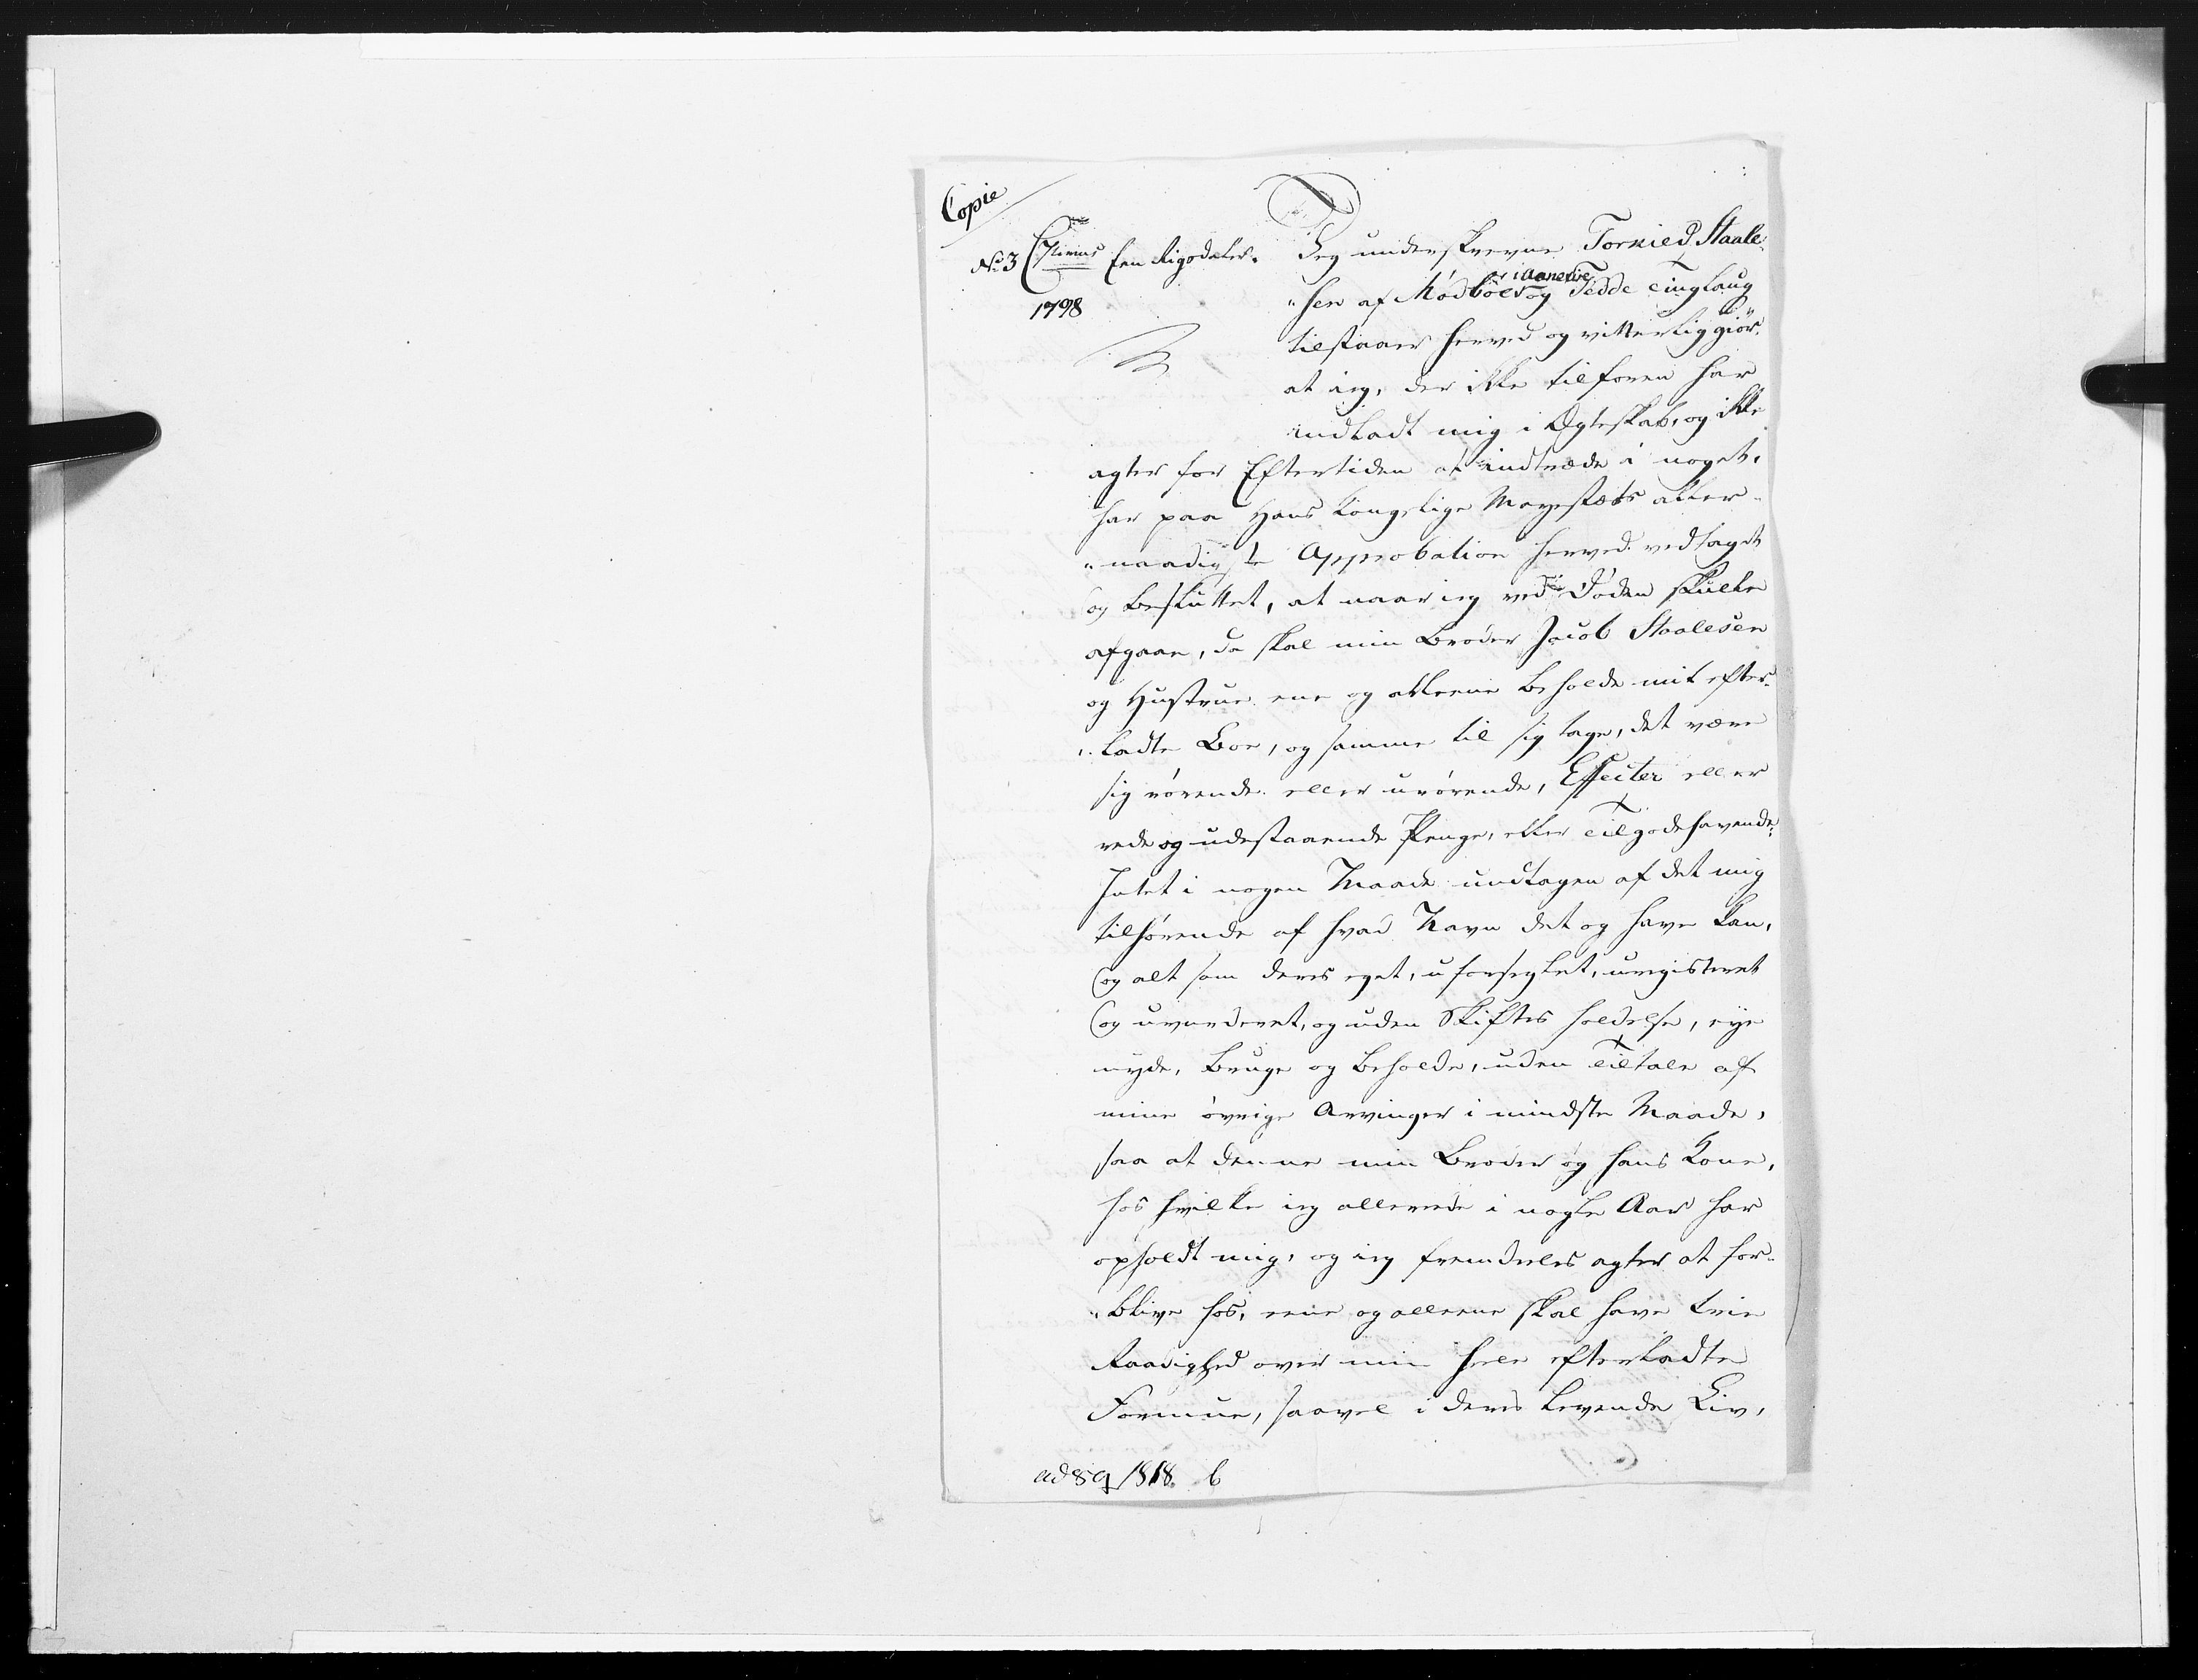 Copie
No 3 C7 Primus Een Rigsdaler.
1798
Jeg underskrevne Torkied Staale¬
"sen af Mødbøe i og Fedde Tinglaug
tilstaaer herved og vitterlig giør,
at ieg, der ikke tilforen har
indladt mig i Ægteskab, og ikke
agter for Eftertiden at indtræde i noget,
har paa Hans Kongelige Mayestæts aller¬
"naadigste Approbation herved vedtaget
og besluttet, at naar ieg ved Døden skulle
afgaae, da skal min Broder Jacob Staalesen
og Hustrue ene og alleene beholde mit efter¬
"ladte Boe, og samme til sig tage, det være
sig rørende eller urørende, Effecter eller
rede og udestaaende Penge, eller Tilgodehavende,
Intet i nogen Maade undtagen af det mig
tilhørende af hvad Navn det og have kan,
og alt som deres eget, uforseglet, uregisteret
og uvurderet, og uden Skiftes holdelse, eye
nyde, bruge og beholde, uden Tiltale af
mine øvrige Arvinger i mindste Maade,
saa at denne min Broder og hans Kone,
hos hvilke ieg allerede i nogle Aar har
opholdt mig, og ieg fremdeles agter at for¬
"blive hos, ene og alleene skal have frie
Raadighed over min hele efterladte
Formue, saavel i deres levende Liv,
ad 89/1818 b